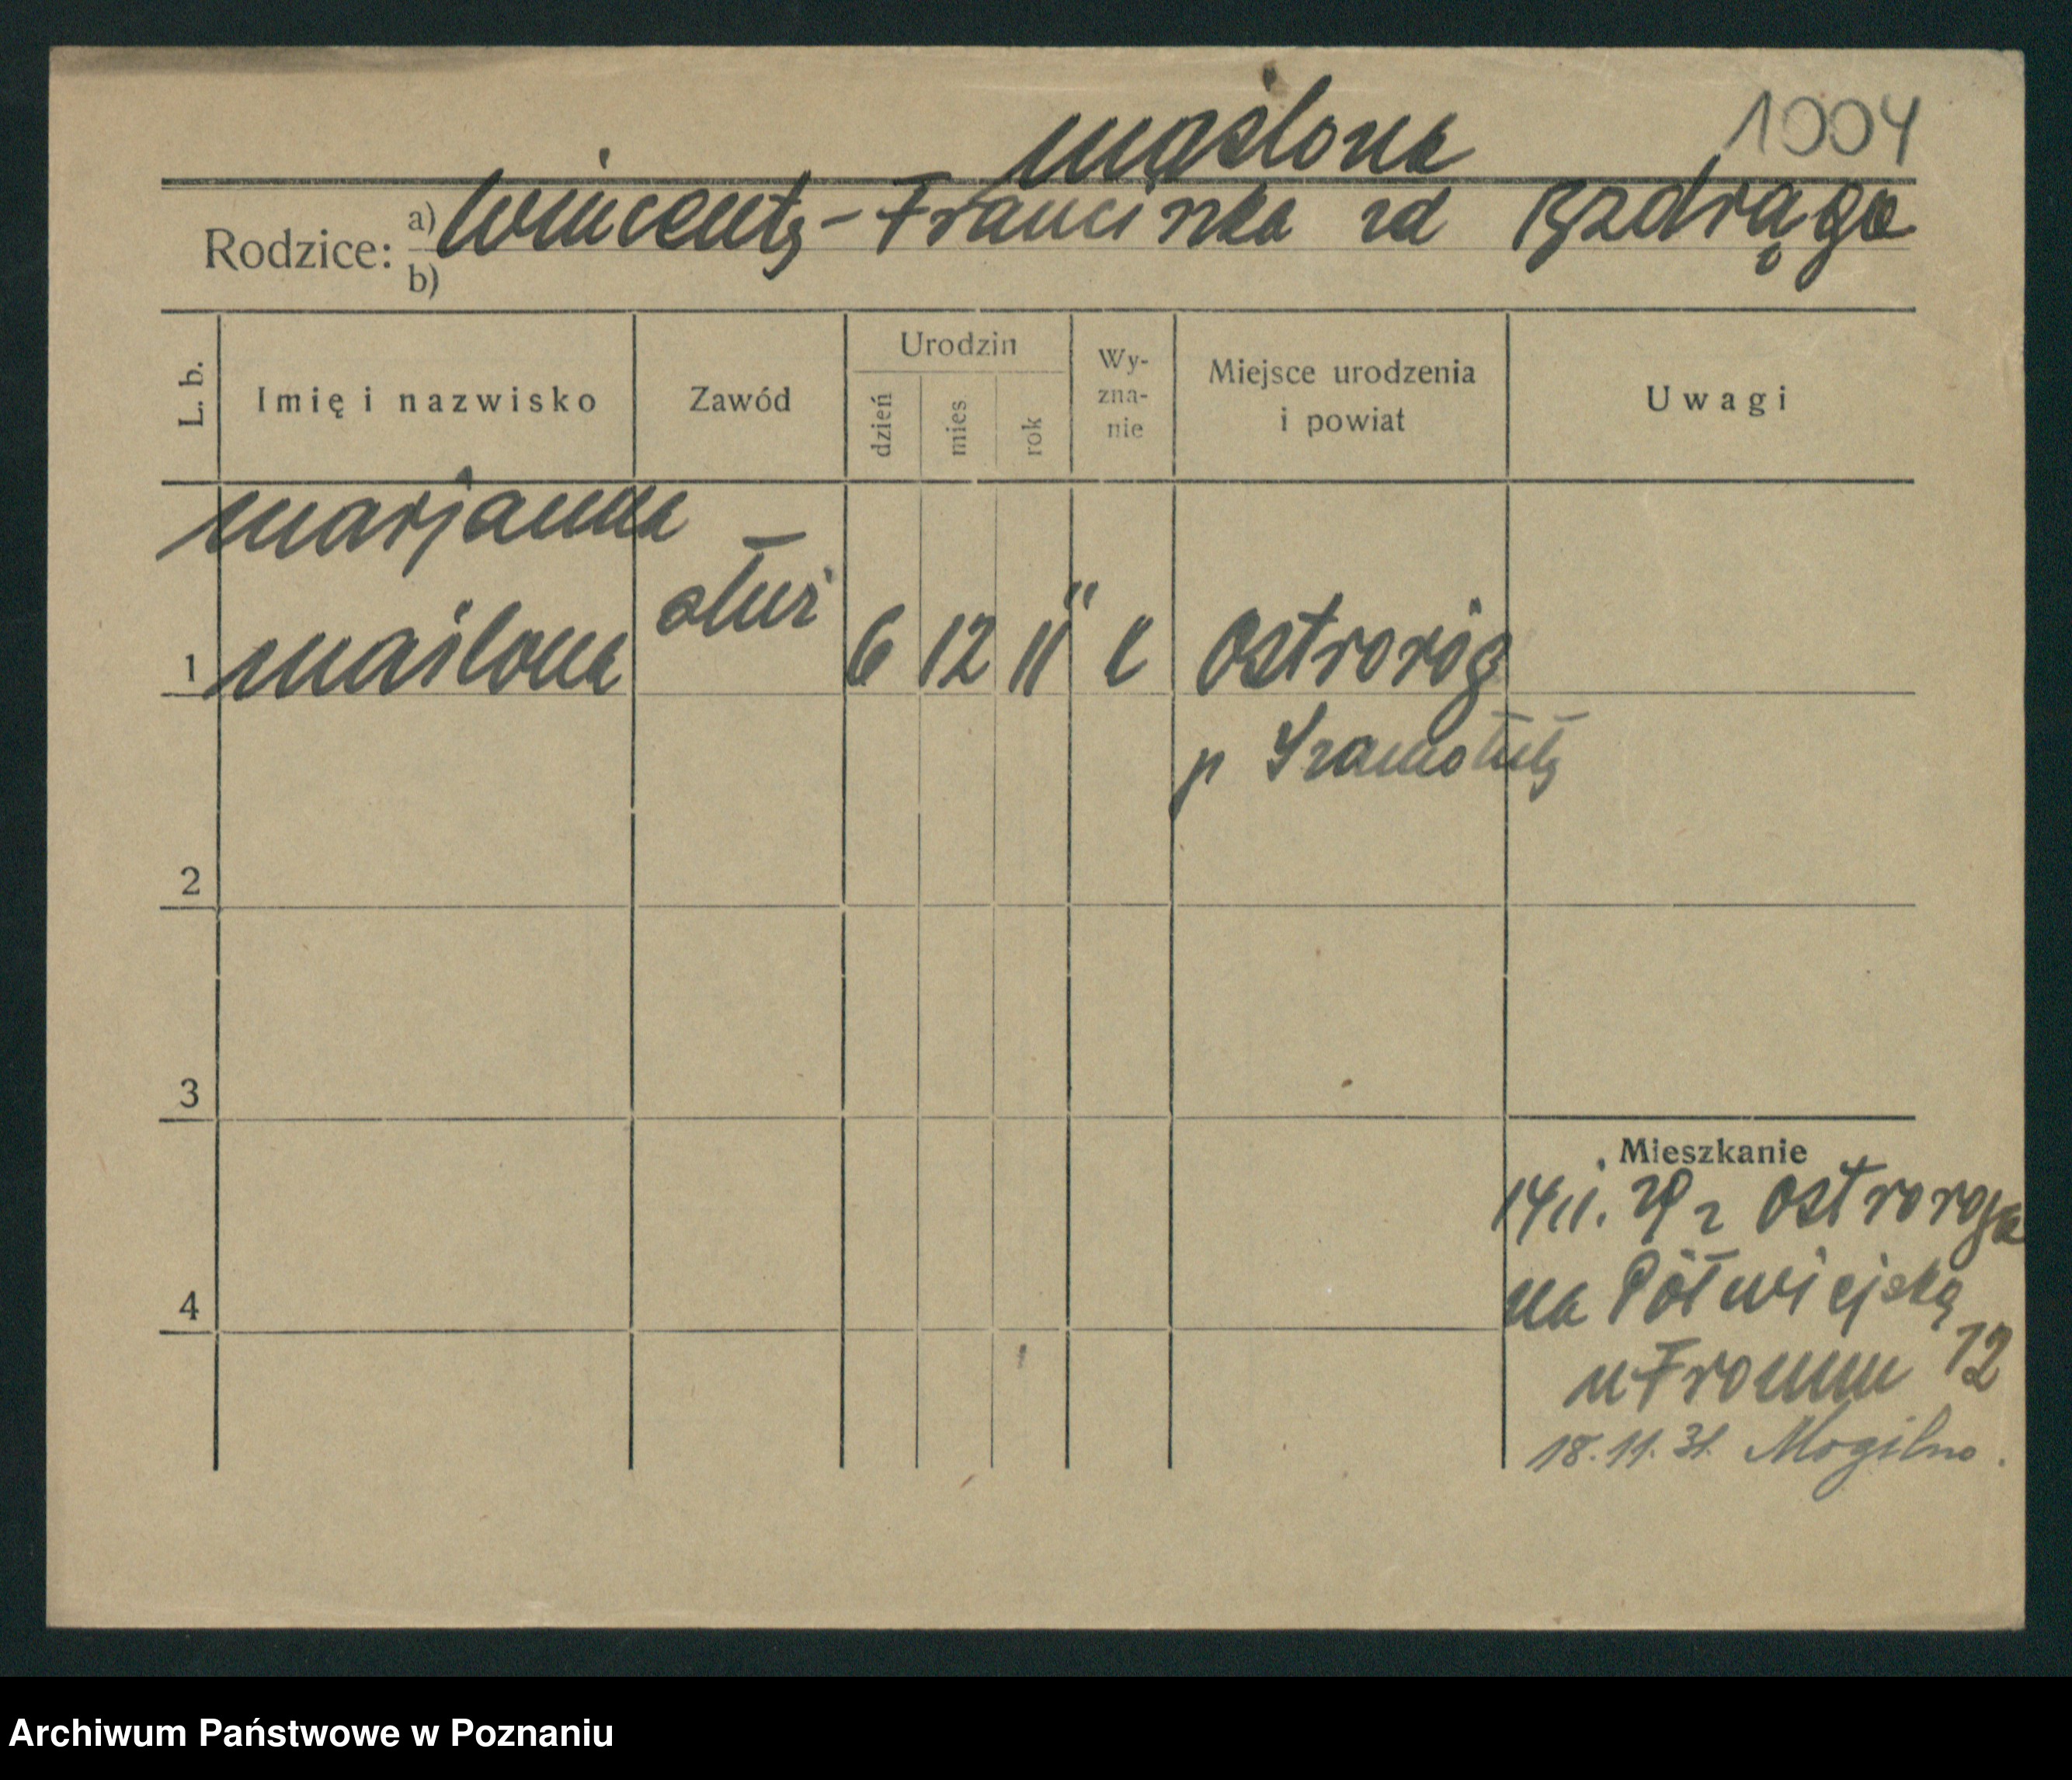 Maślona 1004
Rodzice: a) Wincenty - Franciszka zd Bzdręga
b)
L. b. Imię i nazwisko Zawód Urodzin dzień mies rok Wy-zna-nie Miejsce urodzenia i powiat Uwagi
Marjanna
1 Maślona służ 6 12 11 k Ostroróg
p Szamotuły
2
3
Mieszkanie
14 11. 29 z Ostroroga
4
na Półwiejską
u Fromm 12
18.11.31. Mogilno.
Archiwum Państwowe w Poznaniu